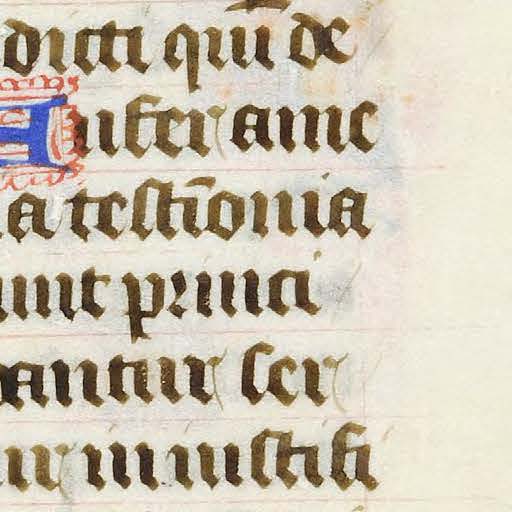 dicti quī de
Aufer a me
a testīonia
unt princi
antur ser
ur in iustifi